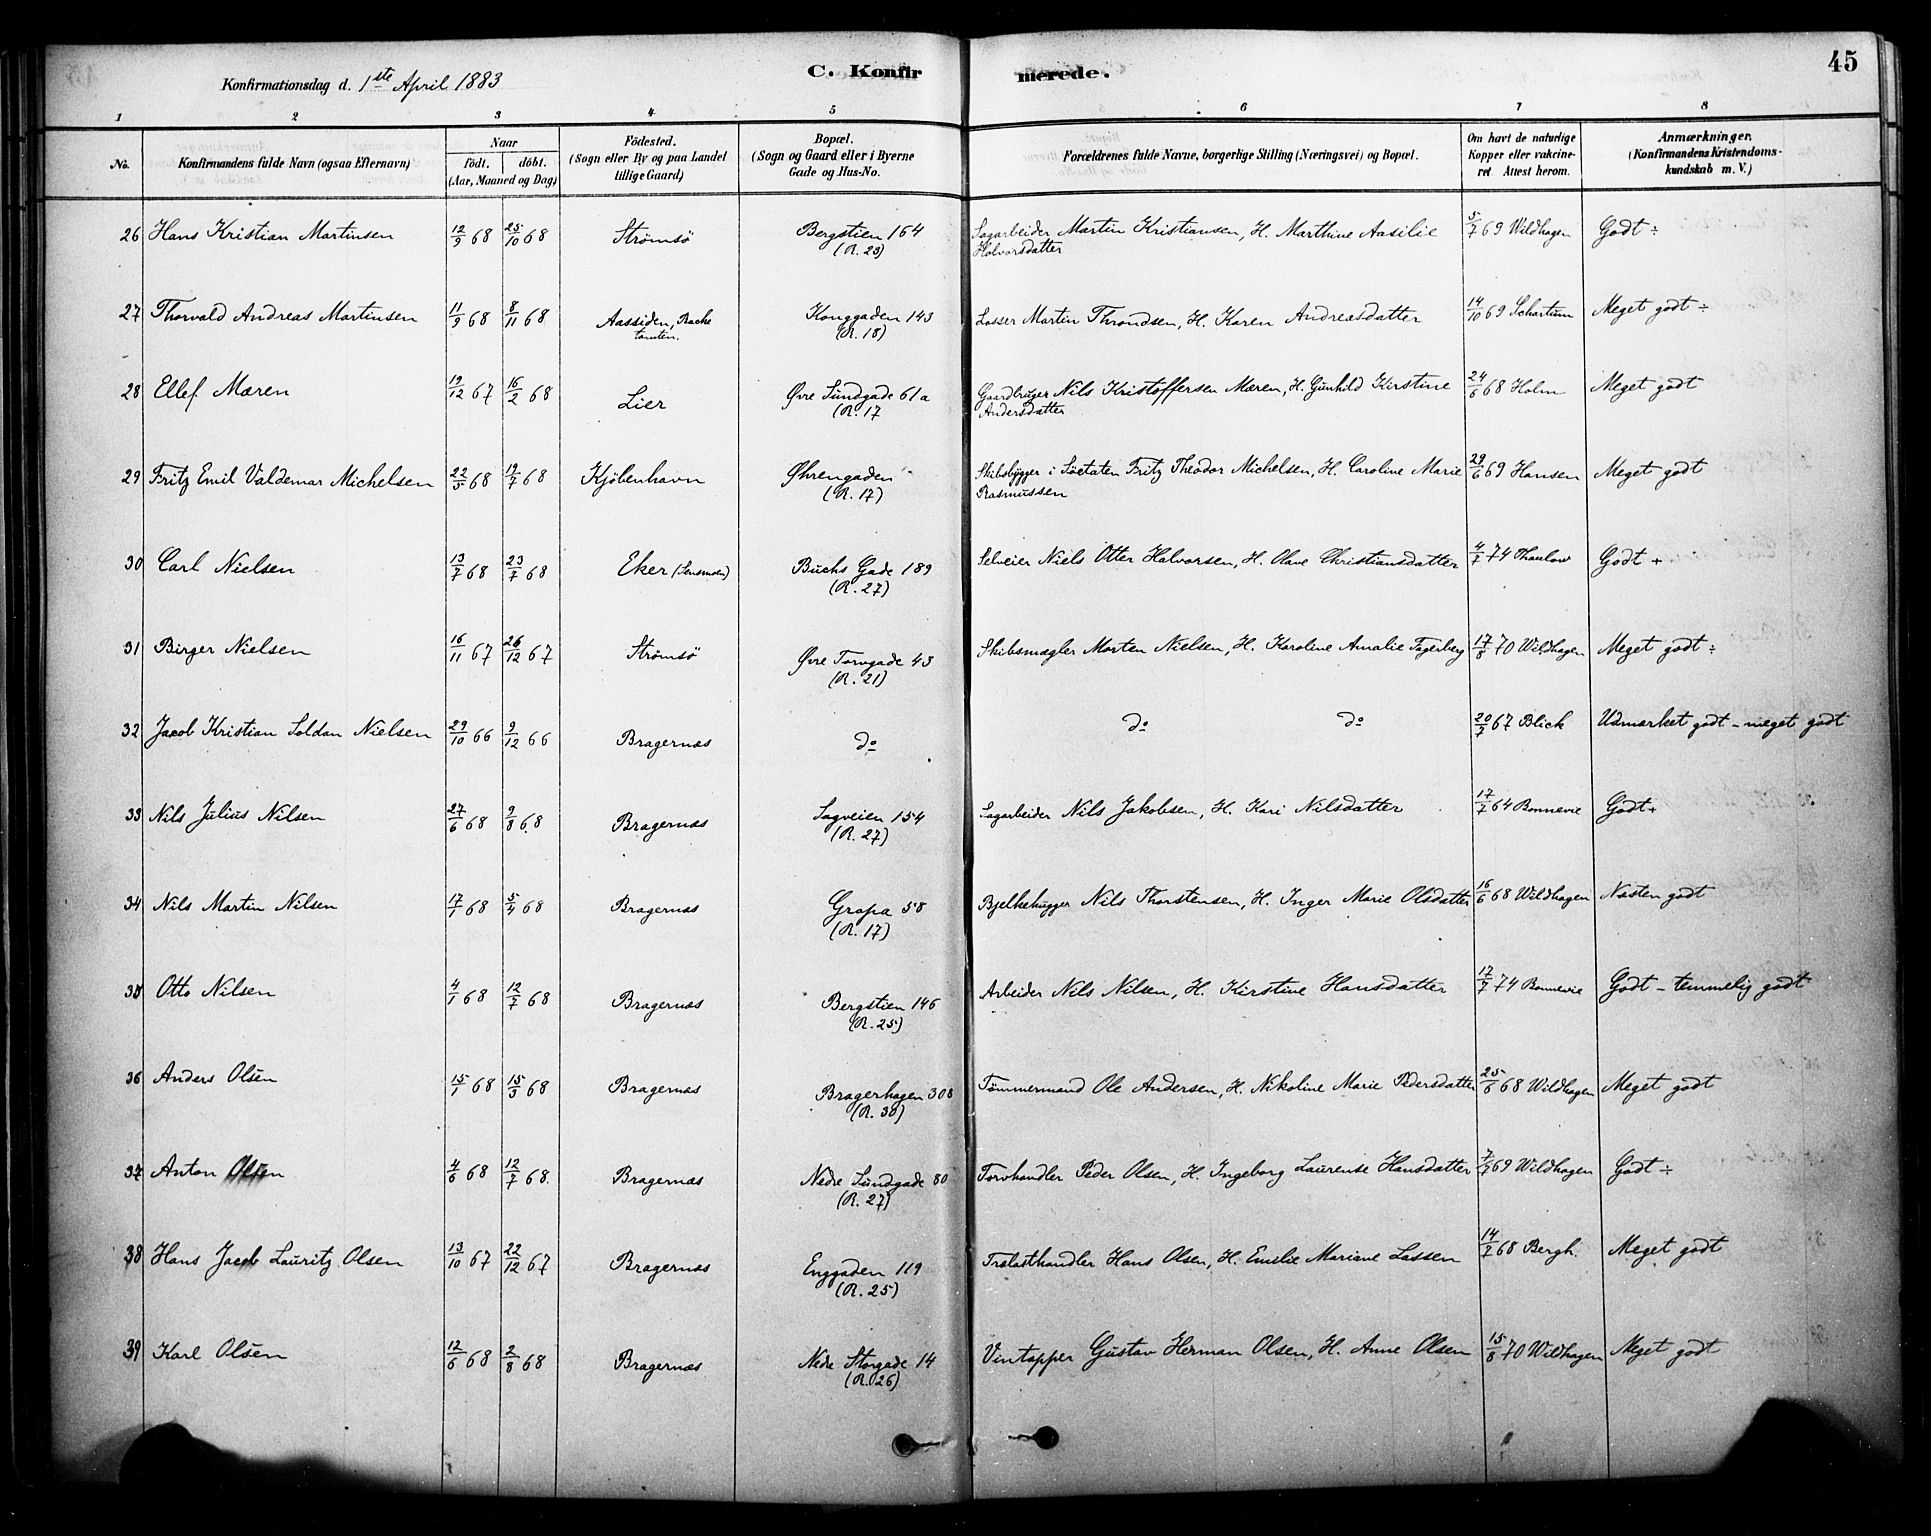 45
Konfirmationsdag d. 1ste April 1883
C. Konfirmerede.
1 2 3 4 5 6 7 8
No. Konfirmandens fulde Navn (ogsaa Efternavn) Naar födt. döbt. (Aar, Maaned og Dag) Födested. (Sogn eller By og paa Landet tillige Gaard) Bopæl. (Sogn og Gaard eller i Byerne Gade og Hus-No. Forældrenes fulde Navne, borgerlige Stilling (Næringsvei) og Bopæl. Om havt de naturlige Kopper eller vakcineret Attest herom. Anmærkninger. (Konfirmandens Kristendomskundskab m. V.)
26 Hans Kristian Martinsen 12/9 68 25/10 68 Strømsö Bergstien 164 (R. 23) Sagarbeider Martin Kristiansen, H. Marthine Aasilie Halvorsdatter 5/7 69 Wildhagen Godt ÷
27 Thorvald Andreas Martinsen 11/9 68 8/11 68 Aassiden, Rache tomten. Konggaden 143 (R. 18) Losser Martin Throndsen, H. Karen Andreasdatter 14/10 69 Schartum Meget godt ÷
28 Ellef Mæren 19/12 67 16/2 68 Lier Øvre Sundgade 61a (R. 17 Gaardbruger Nils Kristoffersen Mæren, H. Gunhild Kirstine Andersdatter 24/6 68 Holm Meget godt
29 Fritz Emil Valdemar Michelsen 22/5 68 19/7 68 Kjöbenhavn Øhrengaden (R. 17) Skibsbygger i Søetaten Fritz Theodor Michelsen, H. Caroline Marie Rasmussen 29/6 69 Hansen Meget godt
30 Carl Nielsen 13/7 68 23/7 68 Eker Buchs Gade 189 (R. 27) Selveier Niels Otter Halvorsen, H. Olave Christiansdatter 4/7 74 Thaulow Godt +
31 Birger Nielsen 16/11 67 26/12 67 Strømsö Øvre Torvgade 43 (R. 21) Skibsmægler Morten Nielsen, H. Karoline Amalie Fagerberg 17/8 70 Wildhagen Meget godt ÷
32 Jacob Kristian Soldan Nielsen 29/10 66 9/12 66 Bragernæs do do do 20/7 67 Blick Udmærket godt - meget godt
33 Nils Julius Nilsen 27/6 68 9/8 68 Bragernæs Sagveien 154 (R. 27) Sagarbeider Nils Jakobsen, H. Kari Nilsdatter 17/7 64 Bonnevie Godt+
34 Nils Martin Nilsen 17/1 68 5/4 68 Bragernæs Gropa 58 (R. 17) Bjelkehugger Nils Thorstensen, H. Inger Marie Olsdatter 16/6 68 Wildhagen Næsten godt
35 Otto Nilsen 4/1 68 12/7 68 Bragernæs Bergstien 146 (R. 25) Arbeider Nils Nilsen, H. Kirstine Hansdatter 17/7 74 Bonnevie Godt - temmelig godt
36 Anders Olsen 15/1 68 15/3 68 Bragernæs Bragerhagen 308 (R. 30) Tømmermand Ole Andersen, H. Nikoline Marie Pedersdatter 25/6 68 Wildhagen Meget godt
37 Anton Olsen 4/6 68 12/7 68. Bragernæs Nedre Sundgade 80 (R. 27) Torvhandler Peder Olsen, H. Ingeborg Laurense Hansdatter 7/7 69 Wildhagen Godt ÷
38 Hans Jacob Lauritz Olsen 13/10 67 22/12 67 Bragernæs Enggaden 119 (R. 25) Trælasthandler Hans Olsen, H. Emilie Mariane Lassen 14/7 68 Bergh. Meget godt
39 Karl Olsen 12/6 68 2/8 68 Bragernæs Nedre Storgade 14 (R. 26) Vintapper Gustav Herman Olsen, H. Anne Olsen 15/8 70 Wildhagen Meget godt